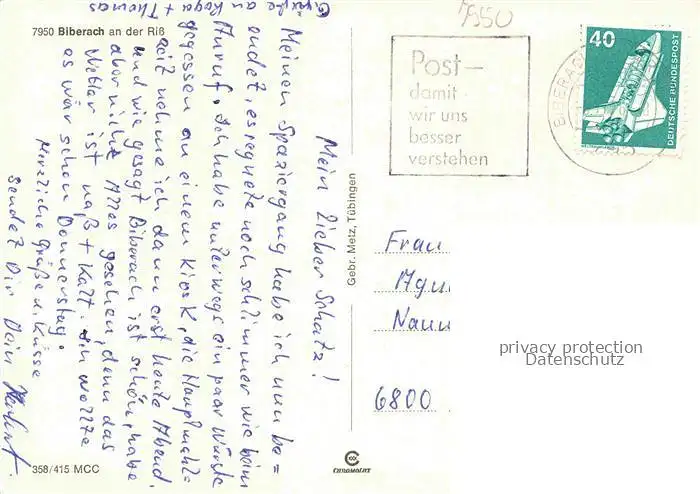 7950 Biberach an der Riß
Mein lieber Schatz!
Meinen Spaziergang habe ich nun be=
endet, es regnete noch schlimmer wie beim
Anruf. Ich habe unterwegs ein paar Würste
gegessen an einem Kiosk, die Hauptmahl-
zeit nehme ich dann erst heute Abend.
und wie gesagt Biberach ist schön, habe
aber nicht Alles gesehen, denn das
Wetter ist naß + kalt. Ich wollte
es wär schon Donnerstag.
Herzliche Grüße u. Küsse
sendet Dir Dein
Grüße an Roga + Thomas
358/415 MCC
Gebr. Metz, Tübingen
CHROMOLUX
7950
Post-
damit
wir uns
besser
verstehen
BIBERAC
40
DEUTSCHE BUNDESPOST
Frau
6800
privacy protection
Datenschutz